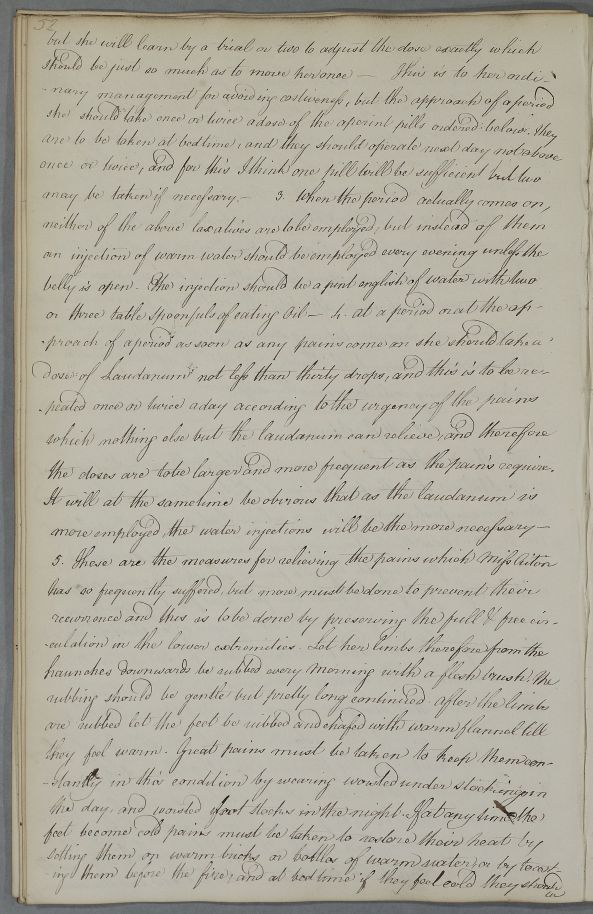 52
but she will learn by a trial or two to adjust the dose exactly which
should be just so much as to move her once — This is to her ordi-
-nary management for avoiding costiveness, but the approach of a period
she should take once or twice a dose of the aperint pills ordered below. They
are to be taken at bedtime, and they should operate next day not above
once or twice, and for this I think one pill will be sufficient but two
may be taken if necessary. — 3. When the period actually comes on,
neither of the above laxatives are to be employed, but instead of them
an injection of warm water should be employed every evening unless the
belly is open. The injection should be a pint english of water with two
or three table spoonfuls of eating Oil — 4. at a period or at the ap-
-proach of a period as soon as any pains come on she should take a
Dose of Laudanum not less than thirty drops, and this is to be re-
-peated once or twice a day according to the urgency of the pains
which nothing else but the laudanum can relieve, and therefore
the doses are to be larger and more frequent as the pains require.
It will at the same time be obvious that as the laudanum is
more employed, the water injections will be the more necessary —
5. These are the measures for relieving the pains which Miss Aiton
has so frequently suffered, but more must be done to prevent their
recurrence and this is to be done by preserving the full & free cir-
-culation in the lower extremeties. Let her limbs therefore from the
haunches downwards be rubbed every morning with a flesh brush. The
rubbing should be gentle but pretty long continued. after the limbs
are rubbed let the feet be rubbed and chafed with warm flannel till
they feel warm. Great pains must be taken to keep them con-
-stantly in this condition by wearing worsted under stockings in
the day, and worsted foot socks in the night. If at any time the
feet become cold pains must be taken to restore their heat by
setting them on warm bricks or bottles of warm water, or by toast-
-ing them before the fire, and at bed time if they feel cold they should